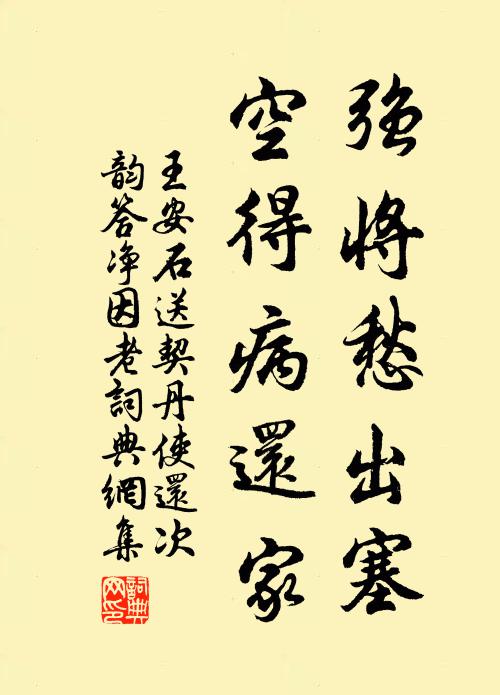 強將愁出塞
空得病還家
王安石送契丹使還次
韵答净因老詞典網集